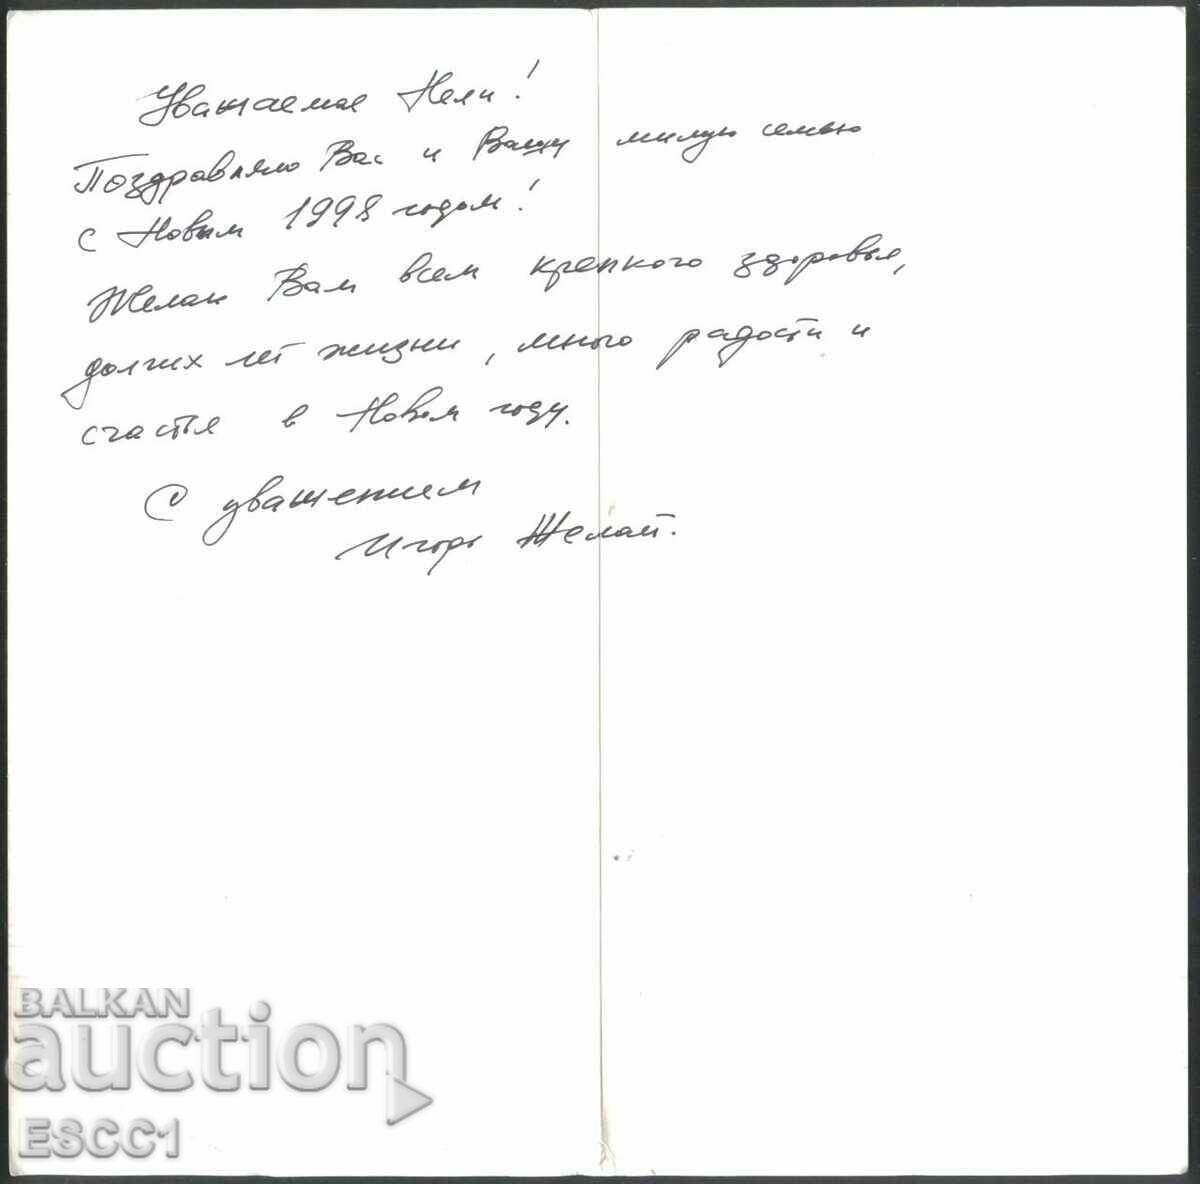 Уважаемая Нели!
Поздравляю Вас и Вашу милую семью
с Новым 1998 годом!
Желаю Вам всем крепкого здоровья,
долгих лет жизни, много радости и
счастья в Новом году.
С уважением
Игорь
BALKAN
auction
ESCC1